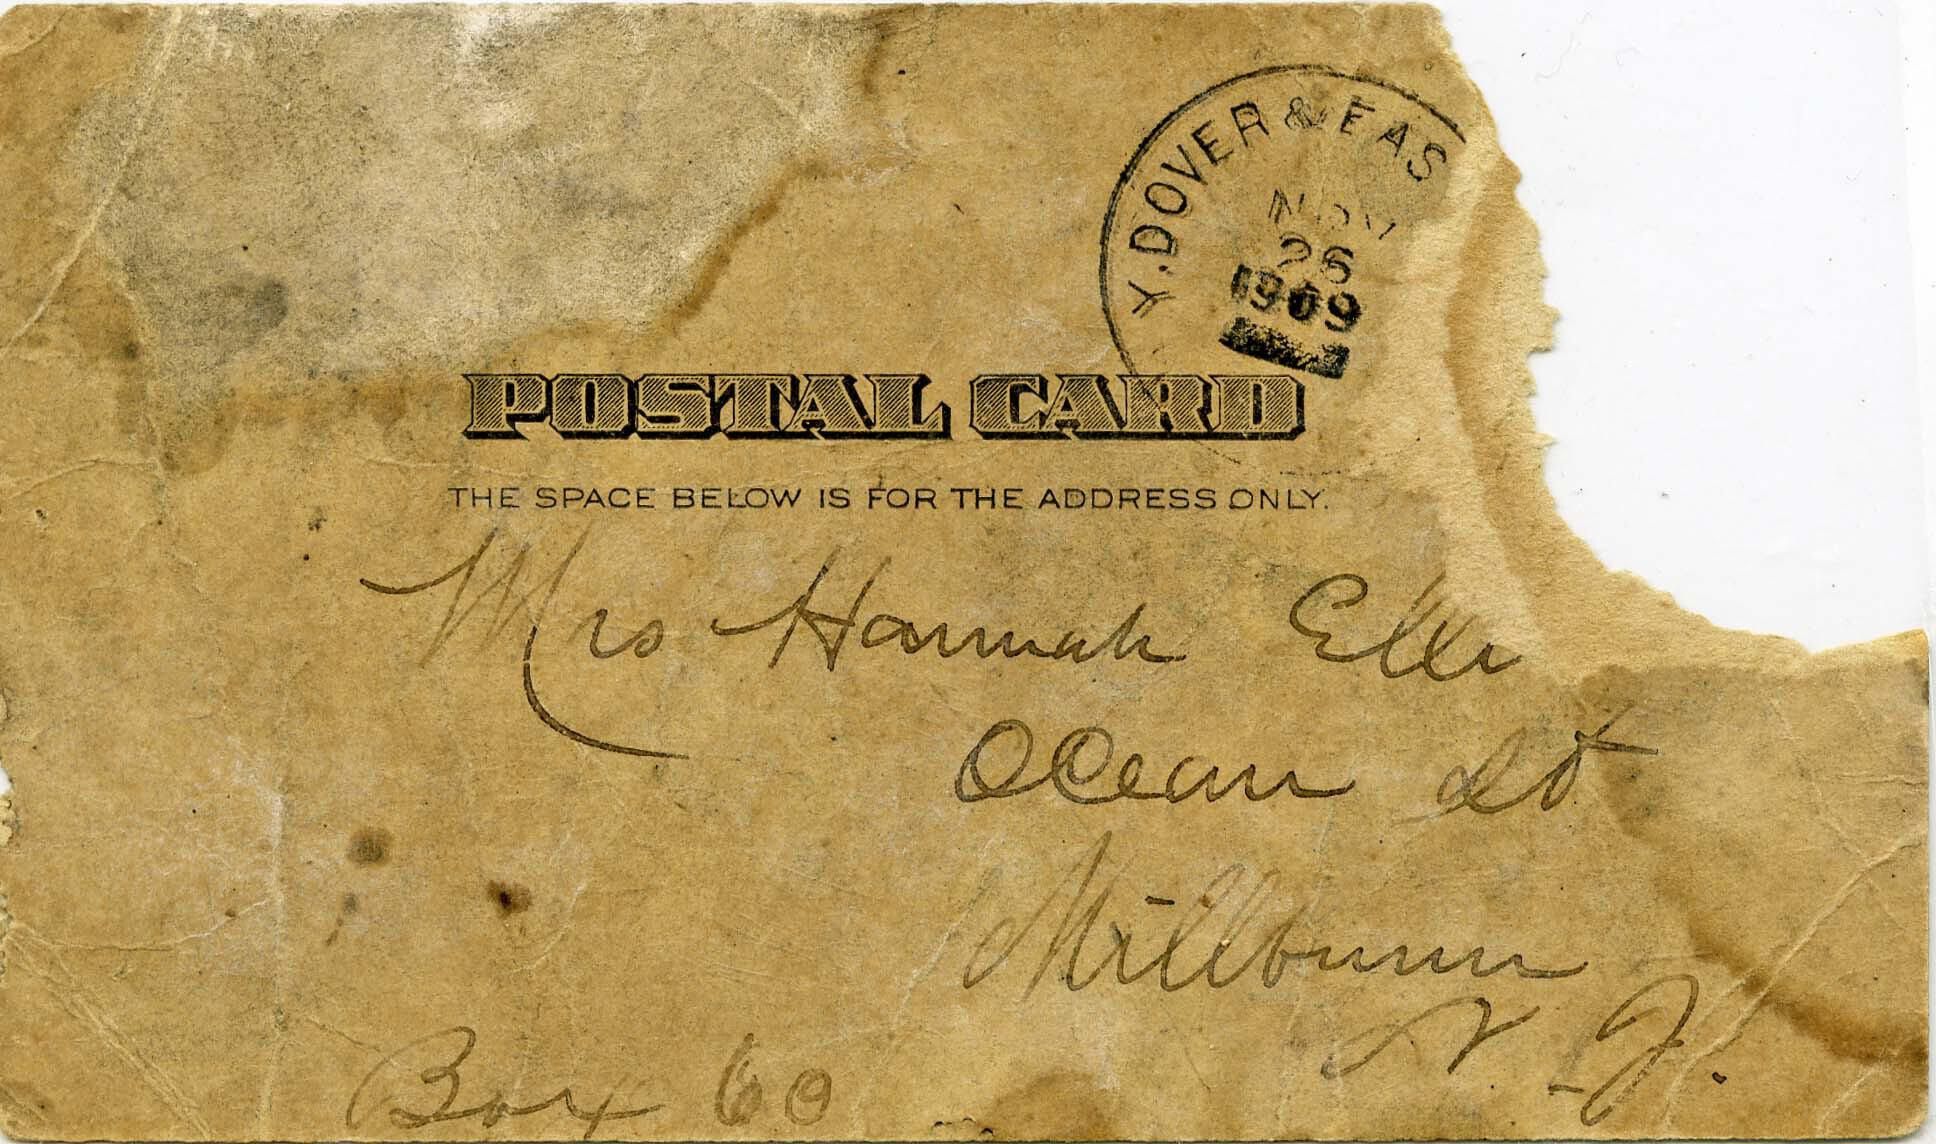 Y. DOVER & EAS
NOV
26
1909
POSTAL CARD
THE SPACE BELOW IS FOR THE ADDRESS ONLY.
Mrs Hannah Elli
Ocean st
Millburn
N. J.
Box 60